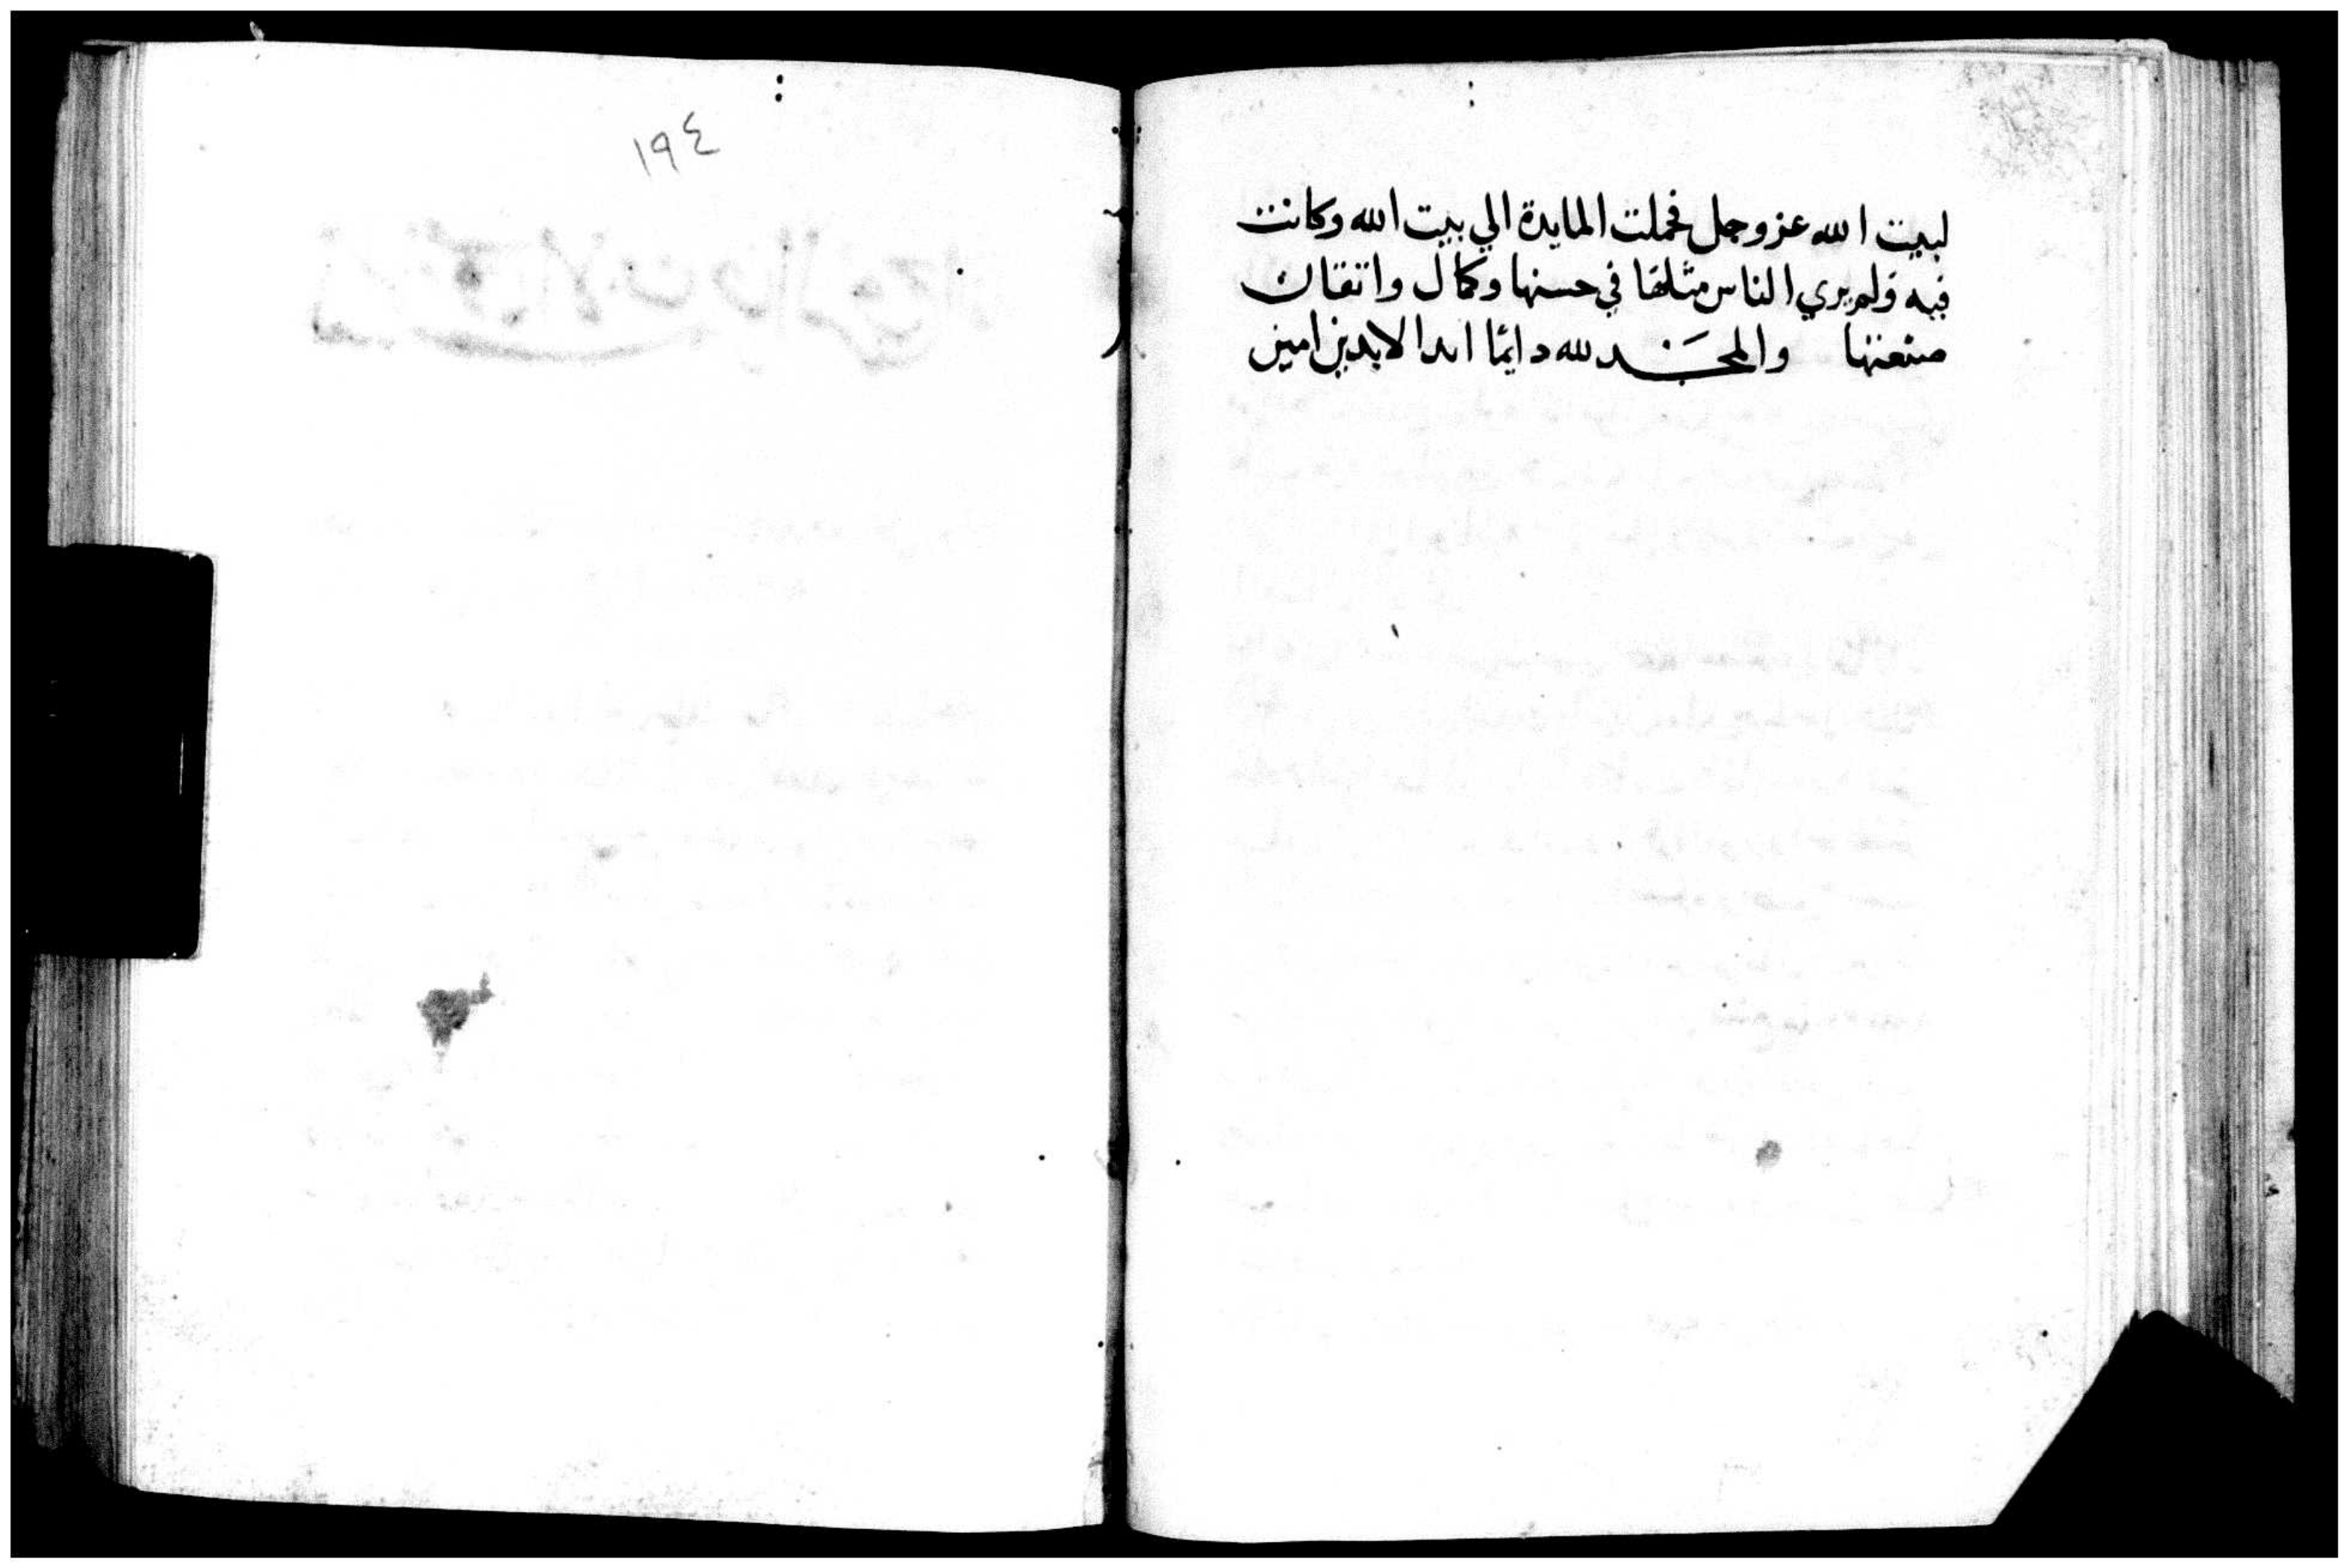 لبيت الله عز وجل فحملت المايدة الي بيت الله وكانت
فيه ولم يري الناس مثلها في حسنها وكمال واتقان
صنعتها والمجد لله دايمًا ابدا الابدين امين
١٩٤